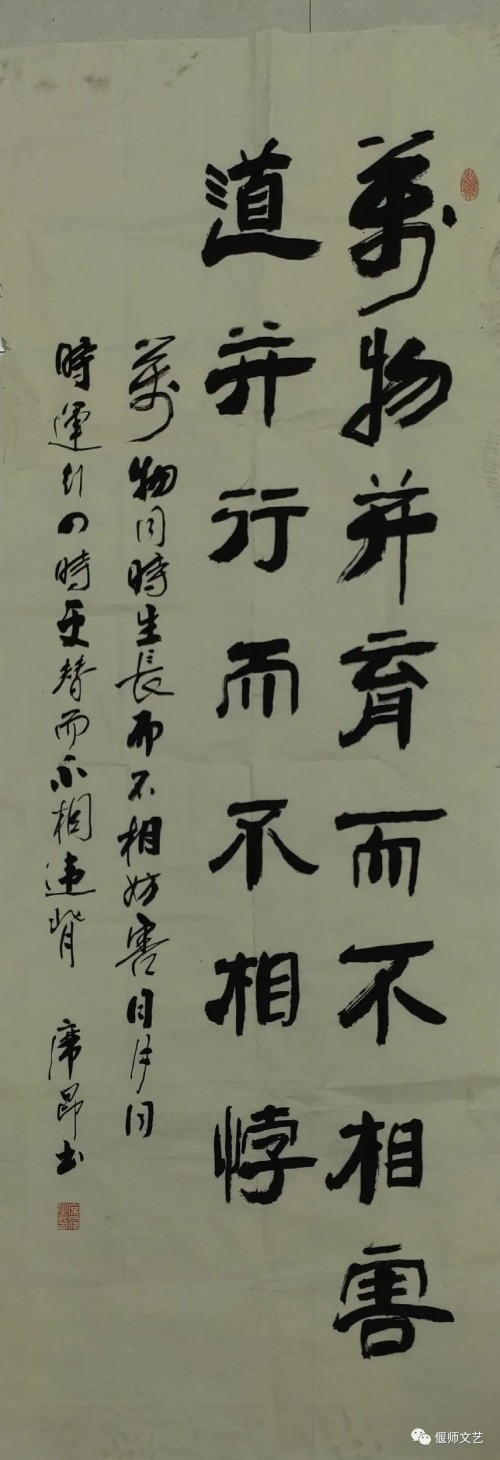 萬物并育而不相害
道并行而不相悖
萬物同時生長而不相妨害日月同
時運行四時更替而不相違背 席昂書
偃师文艺